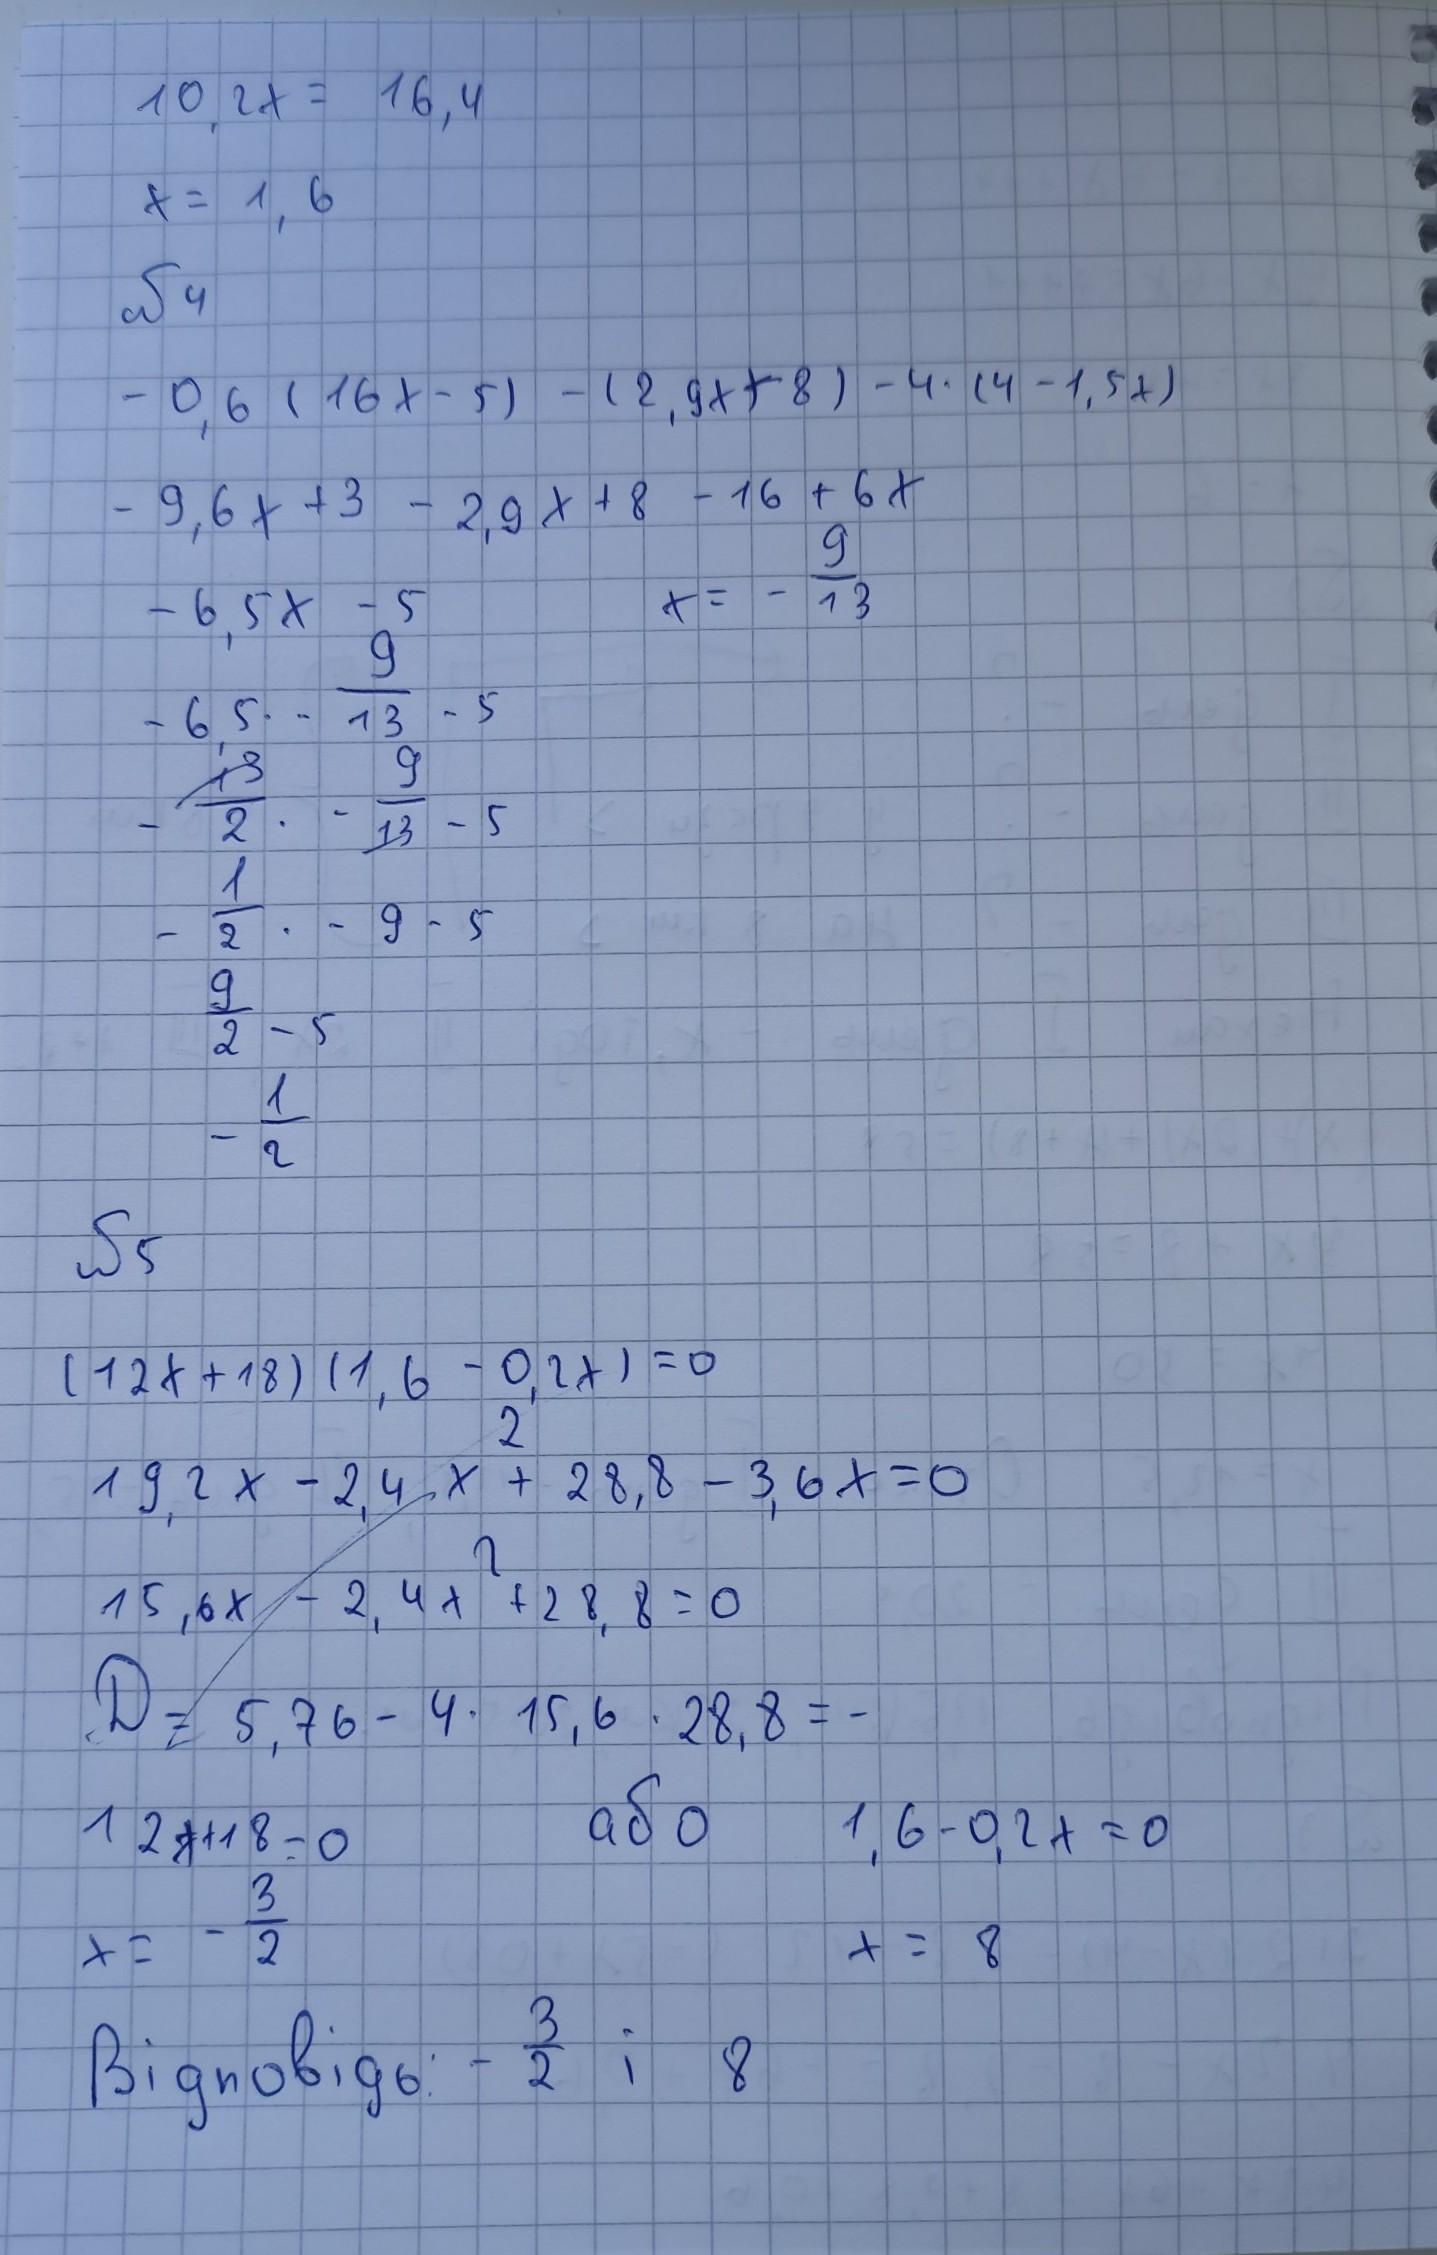 10,2x = 16,4
x = 1,6
№4
-0,6 (16x - 5) - (2,9x - 8) - 4· (4 - 1,5x)
- 9,6x + 3 - 2,9x + 8 - 16 + 6x
- 6,5x - 5 x = - 9/13
- 6,5 · - 9/13 - 5
- 13/2 · - 9/13 - 5
- 1/2 · - 9 - 5
9/2 - 5
- 1/2
№5
(12x + 18) (1,6 - 0,2x) = 0
19,2x - 2,4x² + 28,8 - 3,6x = 0
15,6x - 2,4x² + 28,8 = 0
D = 5,76 - 4 · 15,6 · 28,8 = -
12x + 18 = 0 або 1,6 - 0,2x = 0
x = - 3/2 x = 8
Відповідь: - 3/2 і 8